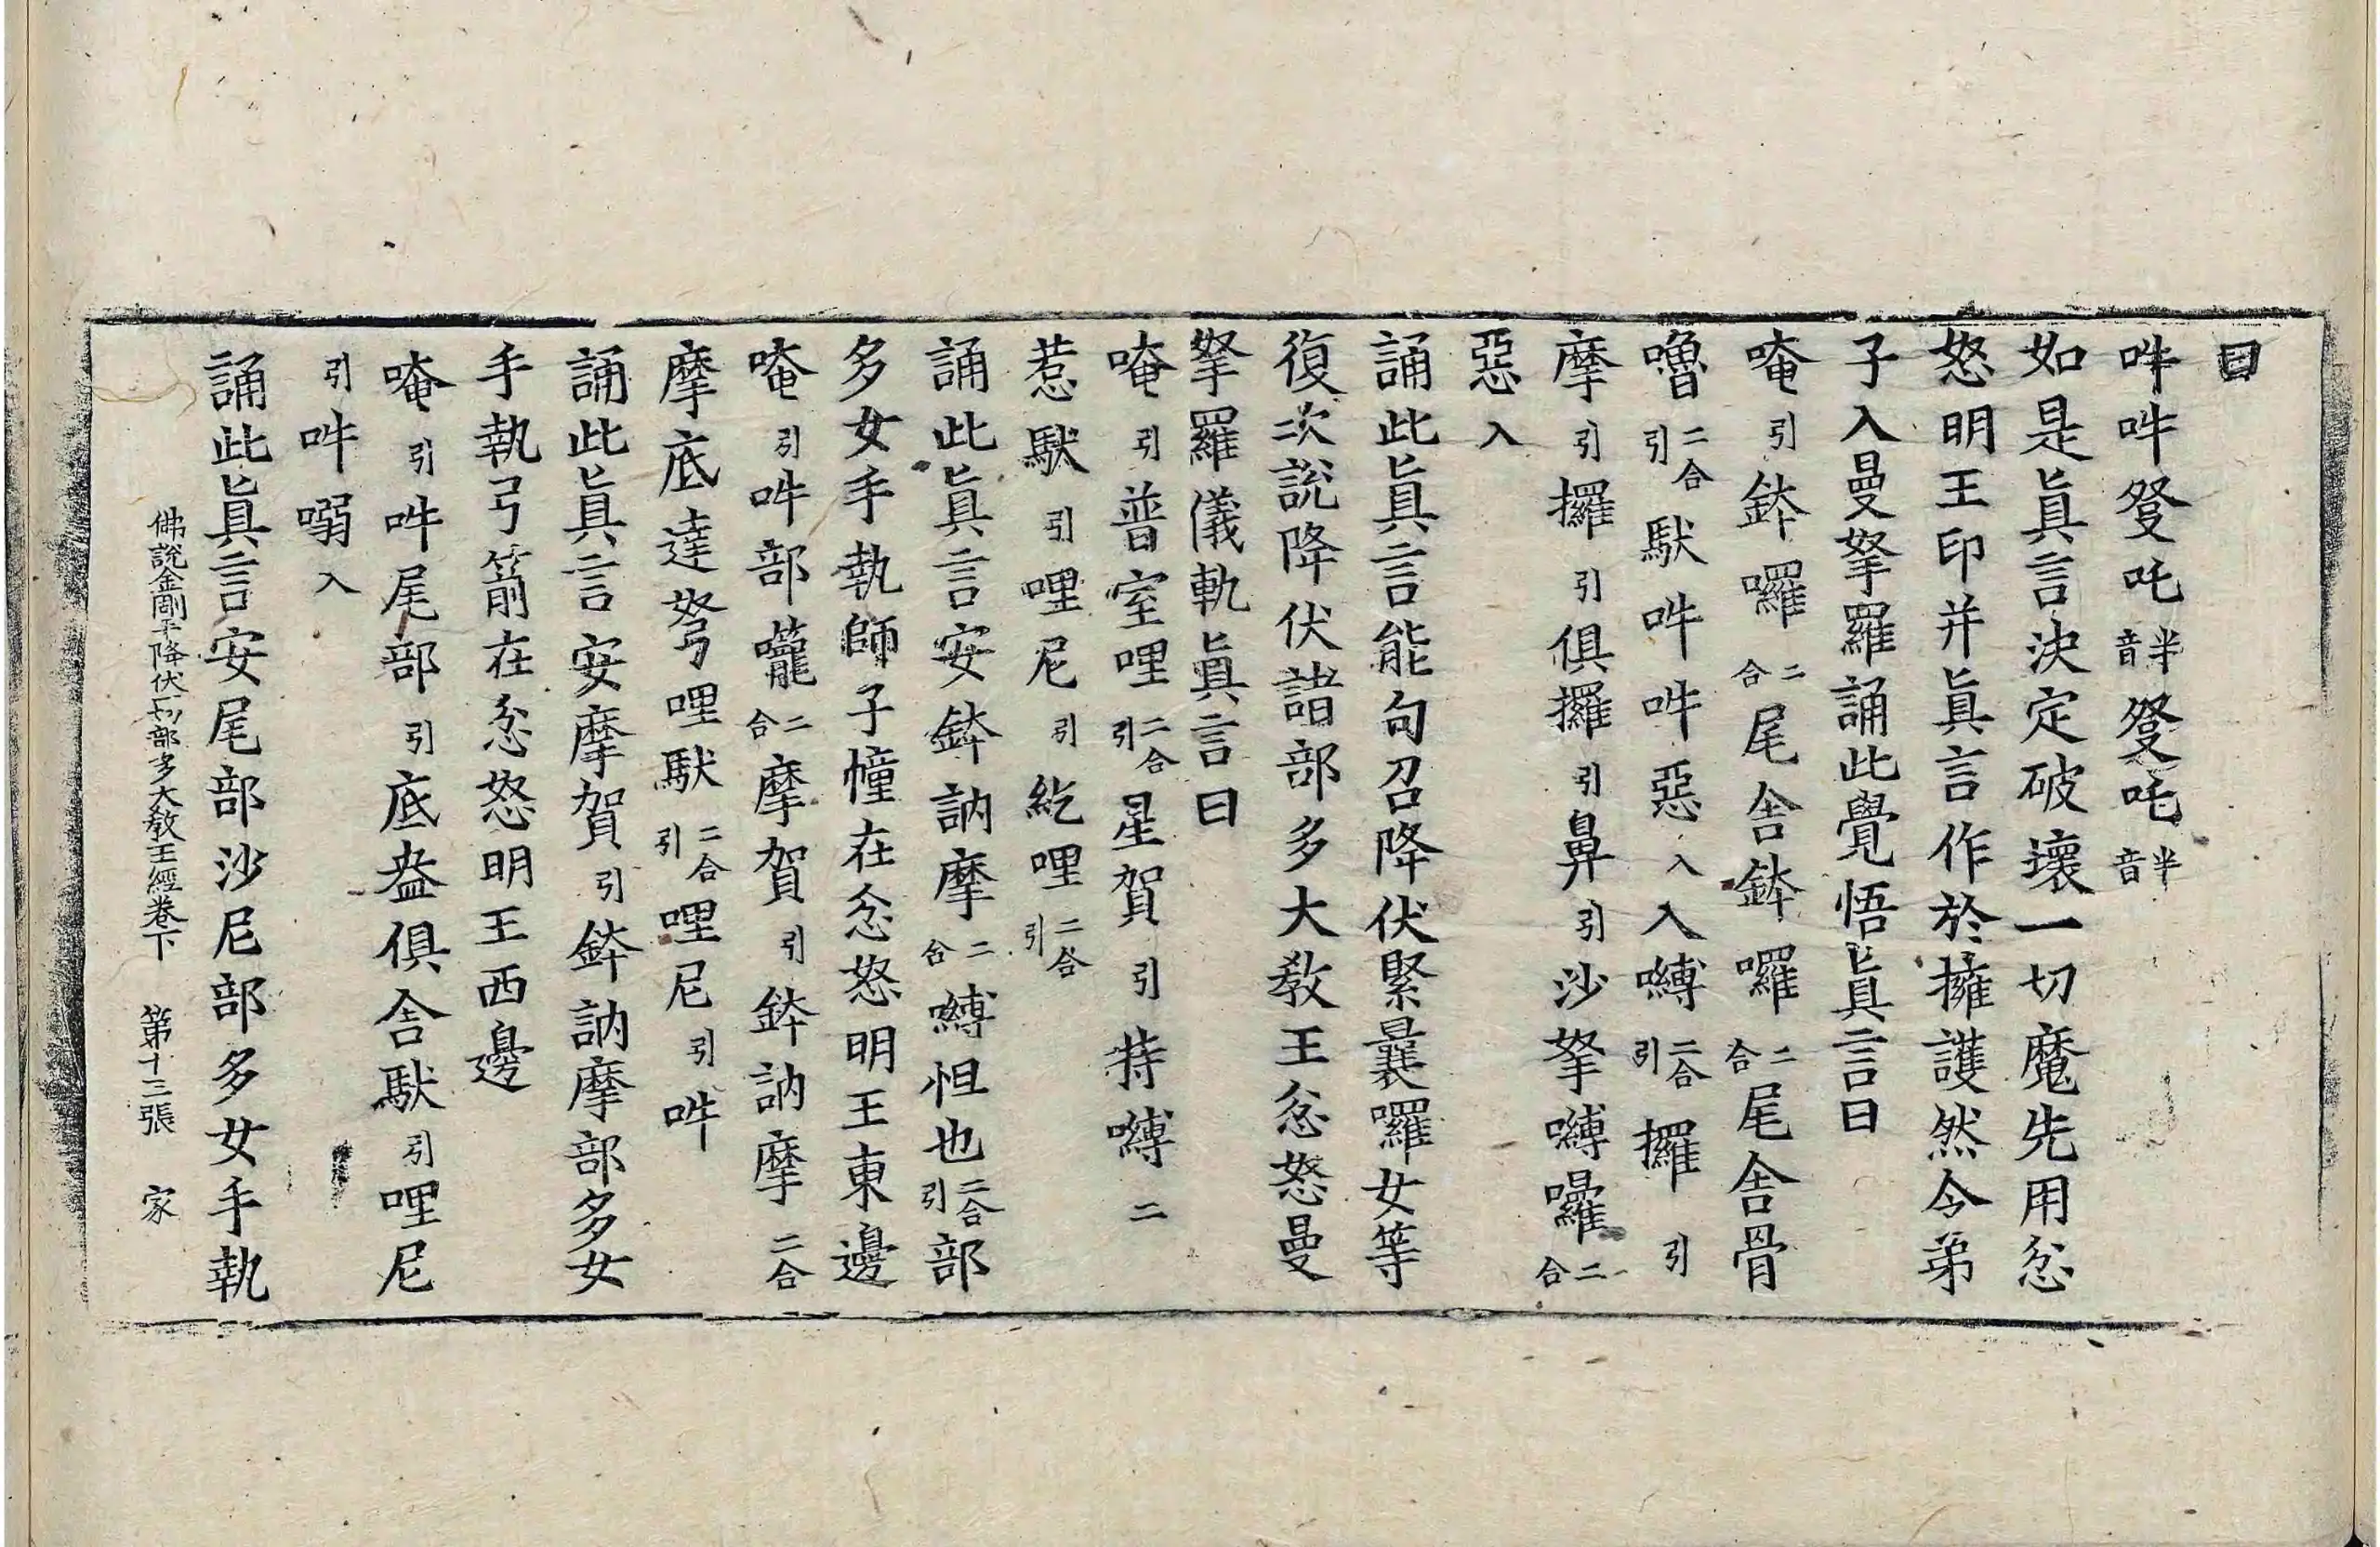 曰
吽吽癹吒半音癹吒半音
如是眞言決定破壞一切魔先用忿
怒明王印并眞言作於擁護然令弟
子入曼拏羅誦此覺悟眞言曰
唵引鉢囉二合尾舍鉢囉二合尾舍骨
嚕二合引馱吽吽惡入入嚩二合引攞引
摩引攞引俱攞引鼻引沙拏嚩囉二合
惡入
誦此眞言能句召降伏緊曩囉女等
復次說降伏諸部多大教王忿怒曼
拏羅儀軌眞言曰
唵引普室哩二合引星賀引特嚩二
惹馱引哩尼引紇哩二合引
誦此眞言安鉢訥摩二合嚩怛也二合引部
多女手執師子幢在忿怒明王東邊
唵引吽部蘢二合摩賀引鉢訥摩二合
摩底達弩哩馱二合引哩尼引吽
誦此眞言安摩賀引鉢訥摩部多女
手執弓箭在忿怒明王西邊
唵引吽尾部引底盎俱舍馱引哩尼
引吽嗍入
誦此眞言安尾部沙尼部多女手執
佛說金剛手降伏一切部多大教王經卷下 第十三張 家